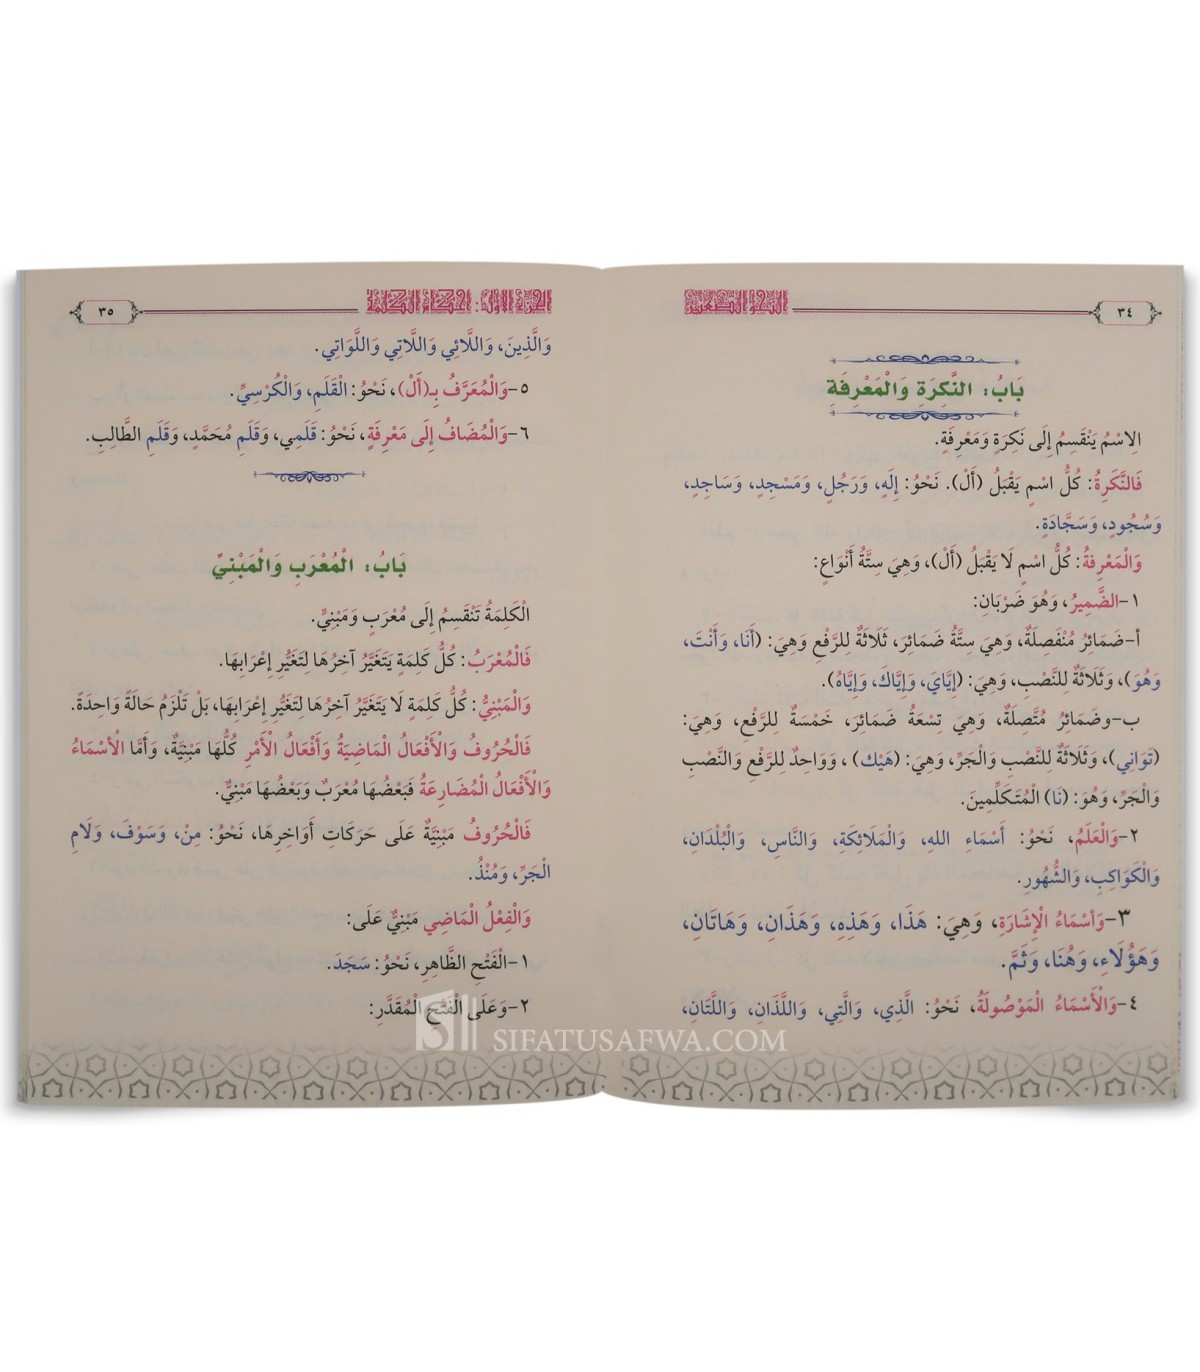 النحو الصغير
٣٤
بَابُ: النَّكِرَةِ وَالْمَعْرِفَةِ
الِاسْمُ يَنْقَسِمُ إِلَى نَكِرَةٍ وَمَعْرِفَةٍ.
فَالنَّكَرَةُ: كُلُّ اسْمٍ يَقْبَلُ (أَلْ). نَحْوُ: إِلَهٍ، وَرَجُلٍ، وَمَسْجِدٍ، وَسَاجِدٍ،
وَسُجُودٍ، وَسَجَّادَةٍ.
وَالْمَعْرِفةُ: كُلُّ اسْمٍ لَا يَقْبَلُ (أَلْ)، وَهِيَ سِتَّةُ أَنْوَاعٍ:
١-الضَّمِيرُ، وَهُوَ ضَرْبَانِ:
أ-ضَمَائِرُ مُنْفَصِلَةٌ، وَهِيَ سِتَّةُ ضَمَائِرَ، ثَلَاثَةٌ لِلرَّفْعِ وَهِيَ: (أَنَا، وَأَنْتَ،
وَهُوَ)، وَثَلَاثَةٌ لِلنَّصْبِ، وَهِيَ: (إِيَّايَ، وَإِيَّاكَ، وَإِيَّاهُ).
ب-وضَمَائِرُ مُتَّصِلَةٌ، وَهِيَ تِسْعَةُ ضَمَائِرَ، خَمْسَةٌ لِلرَّفْعِ، وَهِيَ:
(تَوَانِي)، وَثَلَاثَةٌ لِلنَّصْبِ وَالْجَرِّ، وَهِيَ: (هَيْك) ، وَوَاحِدٌ لِلرَّفْعِ وَالنَّصْبِ
وَالْجَرِّ، وَهُوَ: (نَا) الْمُتَكَلِّمِينَ.
٢-وَالْعَلَمُ، نَحْوُ: أَسْمَاءِ اللهِ، وَالْمَلَائِكَةِ، وَالنَّاسِ، وَالْبُلْدَانِ،
وَالْكَوَاكِبِ، وَالشُّهُورِ.
٣-وَأَسْمَاءُ الْإِشَارَةِ، وَهِيَ: هَذَا، وَهَذِهِ، وَهَذَانِ، وَهَاتَانِ،
وَهَؤُلَاءِ، وَهُنَا، وَثَمَّ.
٤-وَالْأَسْمَاءُ الْمَوْصُولَةُ، نَحْوُ: الَّذِي، وَالَّتِي، وَاللَّذَانِ، وَاللَّتَانِ،
الجزء الأول: أحكام الكلمة
٣٥
وَالَّذِينَ، وَاللَّائِي وَاللَّاتِي وَاللَّوَاتِي.
٥-وَالْمُعَرَّفُ بِـ(أَلْ)، نَحْوُ: الْقَلَمِ، وَالْكُرْسِيِّ.
٦-وَالْمُضَافُ إِلَى مَعْرِفَةٍ، نَحْوُ: قَلَمِي، وَقَلَمِ مُحَمَّدٍ، وَقَلَمِ الطَّالِبِ.
بَابُ: الْمُعْرَبِ وَالْمَبْنِيِّ
الْكَلِمَةُ تَنْقَسِمُ إِلَى مُعْرَبٍ وَمَبْنِيٍّ.
فَالْمُعْرَبُ: كُلُّ كَلِمَةٍ يَتَغَيَّرُ آخِرُهَا لِتَغَيُّرِ إِعْرَابِهَا.
وَالْمَبْنِيُّ: كُلُّ كَلِمَةٍ لَا يَتَغَيَّرُ آخِرُهَا لِتَغَيُّرِ إِعْرَابِهَا، بَلْ تَلْزَمُ حَالَةً وَاحِدَةً.
فَالْحُرُوفُ وَالْأَفْعَالُ الْمَاضِيَةُ وَأَفْعَالُ الْأَمْرِ كُلُّهَا مَبْنِيَّةٌ، وَأَمَّا الْأَسْمَاءُ
وَالْأَفْعَالُ الْمُضَارِعَةُ فَبَعْضُهَا مُعْرَبٌ وَبَعْضُهَا مَبْنِيٌّ.
فَالْحُرُوفُ مَبْنِيَّةٌ عَلَى حَرَكَاتِ أَوَاخِرِهَا، نَحْوُ: مِنْ، وَسَوْفَ، وَلَامِ
الْجَرِّ، وَمُنْذُ.
وَالْفِعْلُ الْمَاضِي مَبْنِيٌّ عَلَى:
١-الْفَتْحِ الظَّاهِرِ، نَحْوُ: سَجَدَ.
٢-وَعَلَى الْفَتْحِ الْمُقَدَّرِ:
SIFATUSAFWA.COM